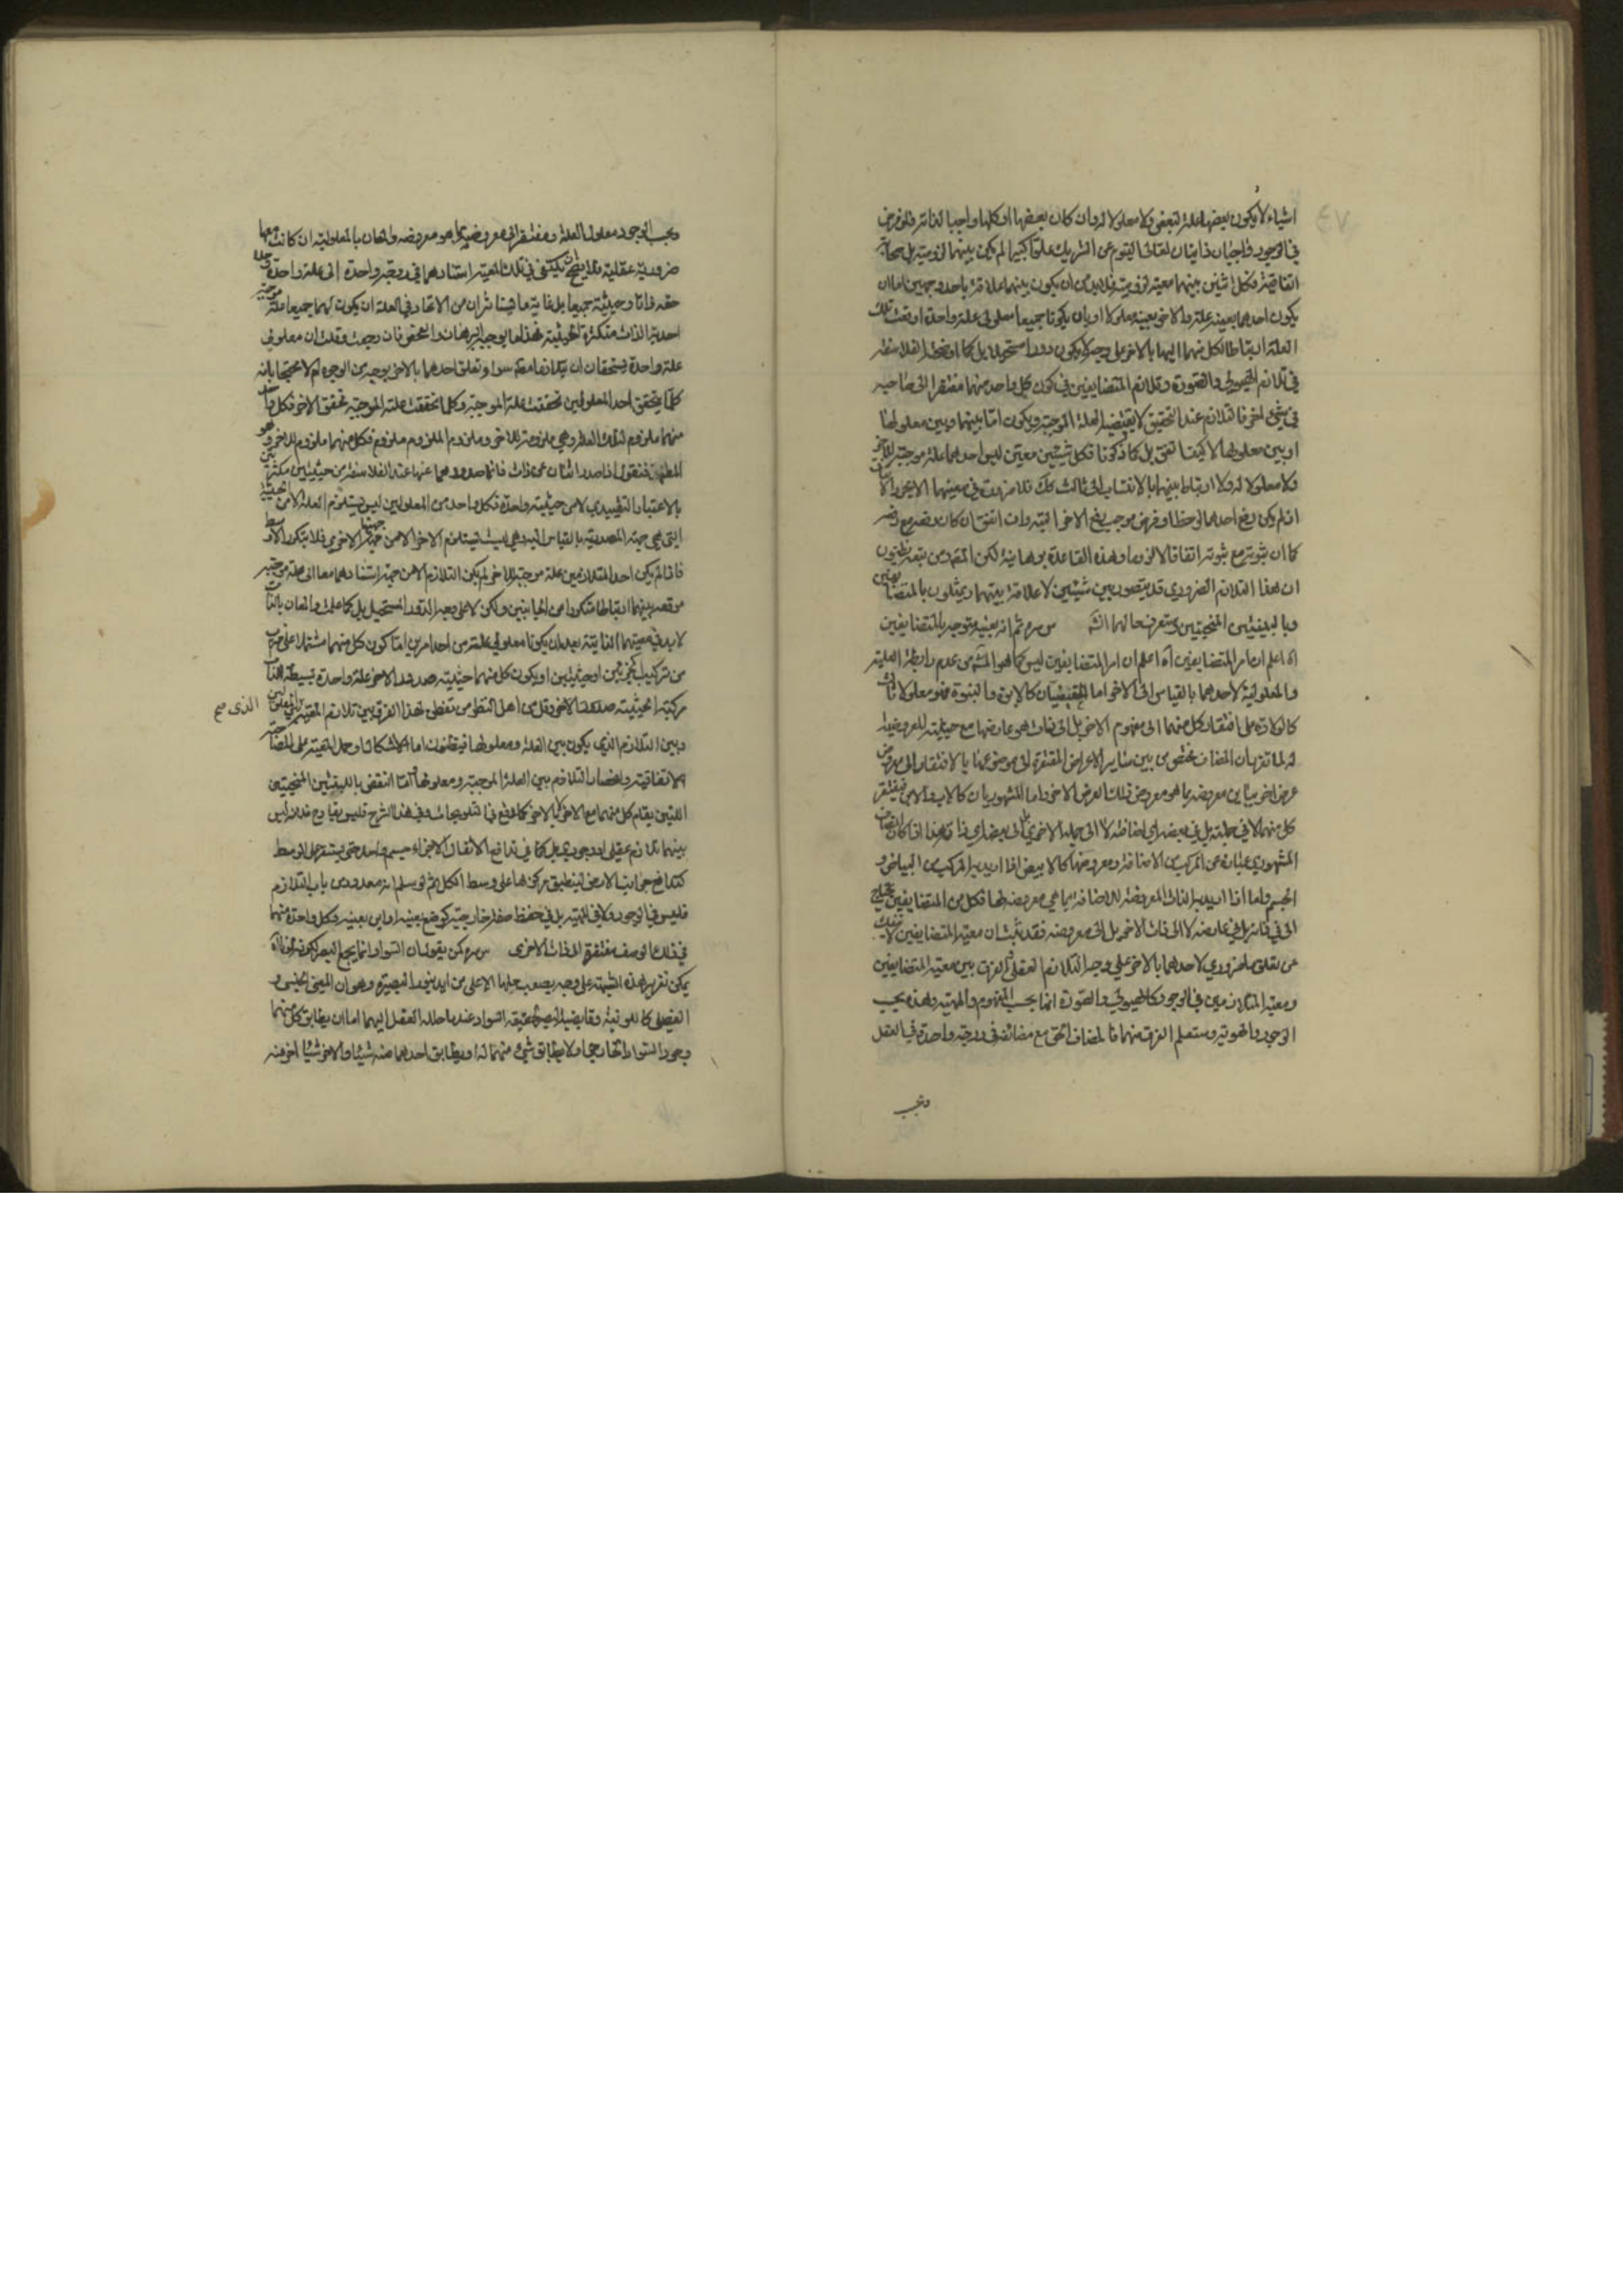 اشياء لا يكون بعضها علة لبعض ولا معلولا له وان كان بعضها او كلها واجبا لذاته فلو فرض
في الوجود واجبان ذاتيان لم يكن بينهما لزومية بل صحابة
اتفاقية فكل اثنين بينهما معية لزومية فلا بد من ان يكون بينهما علاقة باحد وجهين اما ان
يكون احدهما بعينه علة والاخر بعينه معلولا او بان يكونا جميعا معلولي علة واحدة اوقعت تلك
العلة ارتباطا لكل منهما بالاخر على وجه لا يكون دورا مستحيلا بل كما اوضحه الفلاسفة
في تلازم الهيولى والصورة وتلازم المتضايفين في كون كل واحد منهما مفتقرا الى صاحبه
في شيء اخر فالتلازم عند التحقيق لا يقتضيه الا العلة الموجبة ويكون اما بينها وبين معلولها
او بين معلوليها لا كيف اتفق بل كما ذكرنا فكل شيئين معيين ليس احدهما علة موجبة للاخر
ولا معلولا له ولا ارتباط بينهما بالانتساب الى ثالث كذلك فلا
اذ لم يكن رفع احدهما موجب رفع الاخر البتة وان اتفق ان كان رفعه مع رفعه
كما ان ثبوته مع ثبوته اتفاقا لا لزوما وهذه القاعدة برهانية لكن الجمهور
ان هذا التلازم الضروري قد يتصور بين شيئين لا علاقة بينهما ويمثلون بالمتضايفين
وباللبنتين المنحنيتين وستعرف حالهما انشه س ره ثم انه بعينه متوجه بالمتضايفين
اه اعلم ان امر المتضايفين اه اعلم ان امر المتضايفين ليس كما هو المشهور من عدم رابطة العلية
والمعلولية لاحدهما بالقياس الى الاخر اما الحقيقيان كالابوة والبنوة فهو معلولا ثالث
كالولادة على افتقار كل منهما الى مفهوم الاخر بل الى ذات هو عارضها مع حيثية المعروضية
له لما تقر ان المضاف مختص من بين سائر الاعراض المفتقرة الى موضوعها بالافتقار الى معروض
عرض اخر يباين معروضه بما هو معروض ذلك العرض الاخر واما المشهوريان كالاب والابن فيفتقر
كل منهما لا في جملته بل في بعضه اي اضافته لا الى جملة الاخر بل الى بعضه اي ذاته هذا اذا كان المضاف
المشهوري عبارة عن المركب من الاضافة ومعروضها كالابيض اذا اريد به المركب من البياض و
الجسم واما اذا اريد به الذات المعروضة للاضافة بما هي معروضة لها فكل من المتضايفين محتاج
الى في عارضه لا الى ذات الاخر بل الى معروضه فقد ثبت ان معية المتضايفين لا تنفك
عن تعلق ضروري لاحدهما بالاخر على وجه التلازم العقلي ثم الفرق بين معية المتضايفين
ومعية المتلازمين في الوجود كالهيولى والصورة انما بحسب المفهوم والمهية وهذه بحسب
الوجود والهوية وستعلم الفرق منهما فالمضاف الحق مع مضائفه في درجة واحدة في العقل
وبحسب
وبحسب الوجود معلول العلة ومفتقر الى معروضه بما هو معروضه والمعان بالمعلولية ان كانت معها
ضرورية عقلية يكتفى في تلك المعية استنادهما في درجة واحدة الى علة واحدة
حقه ذاتا وحيثية جميعا بل غاية ما هناك من الاتحاد في العلة ان يكون لهما جميعا علة موجبة
احدية الذات متكثرة الحيثية فهذا ما يوجبه البرهان والفحص فان رجعت وقلت ان معلولي
علة واحدة يستحقان ان يتلازما معية سواء تعلق احدهما بالاخر بوجه من الوجوه ام لا محتجا بانه
كلما يتحقق احد المعلولين تحققت علته الموجبة وكلما تحققت علته الموجبة تحقق الاخر فكل واحد
منهما ملزوم لتلك العلة وهي ملزومة للاخر وملزوم الملزوم ملزوم فكل منهما ملزوم للاخر وهو
المطلوب فنقول اذا صدر اثنان عن ذات فانما صدورهما عنها عند الفلاسفة من حيثيتين مكثرتين
بالاعتبار التقييدي لا من حيثية واحدة فكل واحد من المعلولين ليس يستلزم العلة الا من الحيثية
التي هي جهة المصدرية بالقياس اليه وهي ليست تستلزم الاخر الا من جهتها الاخرى فلا يتكرر الاوسط
فاذا لم يكن احد المتلازمين علة موجبة للاخر لم يكن التلازم الا من جهة استنادهما معا الى علة موجبة
موقعه بينهما ارتباطا متكررا من الجانبين ولكن لا على وجه الدور المستحيل بل كما علمت والمعان بالذات
لا بد في معيتهما الذاتية بعد ان يكونا معلولي علة من احد امرين اما كون كل منهما مشتملا على ضرب
من تركيب جزئين او حيثيتين او يكون كل منهما حيثية صدور الاخر عن علة واحدة بسيطة الذات
مركبة الحيثية صدور الاخر وقل من اهل النظر من تفطن لهذا الفرق بين تلازم المعية بين المعلولين الذي صح
وبين التلازم الذي يكون بين العلة ومعلولها فيظنون اما الاشكال وحمل المعية على المصاحبة
الاتفاقية وانحصار التلازم بين العلة الموجبة ومعلولها اما النقض باللبنتين المنحنيتين
اللتين يقام كل منهما مع الاخر بالاخر كما وقع في التلويحات وفي هذا الشرح فليس بقادح فانه ليس
بينهما تلازم عقلي او وجودي بل كما في تدافع الاثقال لاجزاء جسم واحد حتى يستقر على الوسط
كتدافع جوانب الارض لينطبق مركزها على وسط الكل ثم لو سلم انه معدود من باب التلازم
فليس في الوجود ولا في المهية بل في حفظ صفة خارجية كوضع بعينه او اين بعينه وكل واحدة منهما
في ذلك الوصف مفتقرة الى ذات الاخرى س ره كمن يقول ان السواد انما يجمع البصر لكونه لونا اه
يمكن تقرير هذه الشبهة على وجه يصعب حلها الا على من ايد بنور البصيرة وهو ان المعنى الجنسي و
الفصلي كاللونية وقابضية البصر لحقيقة السواد عند ما حلله العقل اليهما اما ان يطابق كل منهما
وجود السواد الخارجي او لا يطابق شيء منهما له او يطابق احدهما منه شيئا والاخر شيئا اخر منه